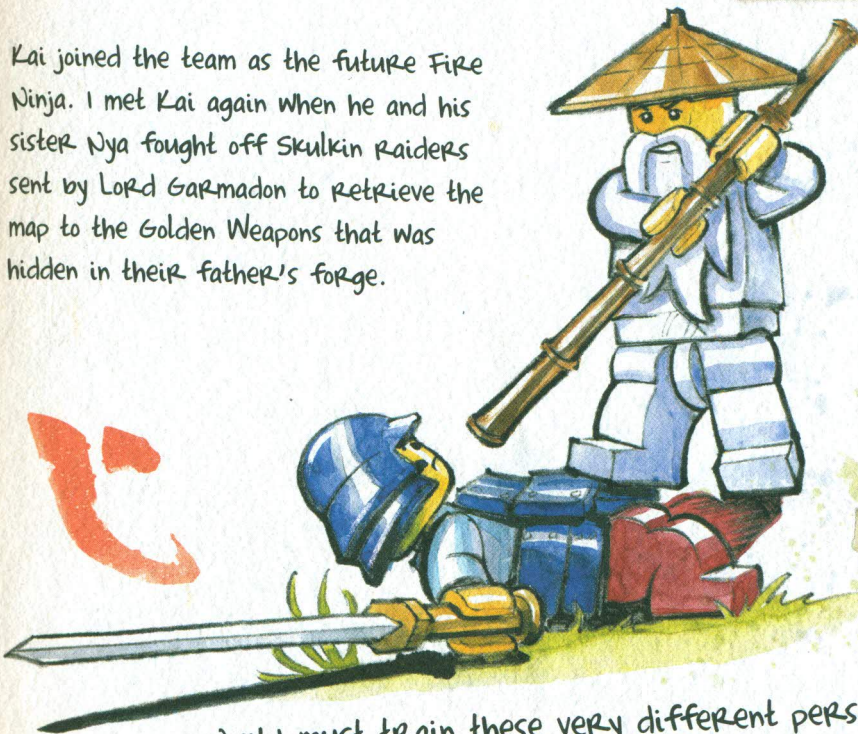 Kai joined the team as the future Fire
Ninja. I met Kai again when he and his
sister Nya fought off Skulkin Raiders
sent by Lord Garmadon to retrieve the
map to the Golden Weapons that was
hidden in their father's forge.
must train these very different